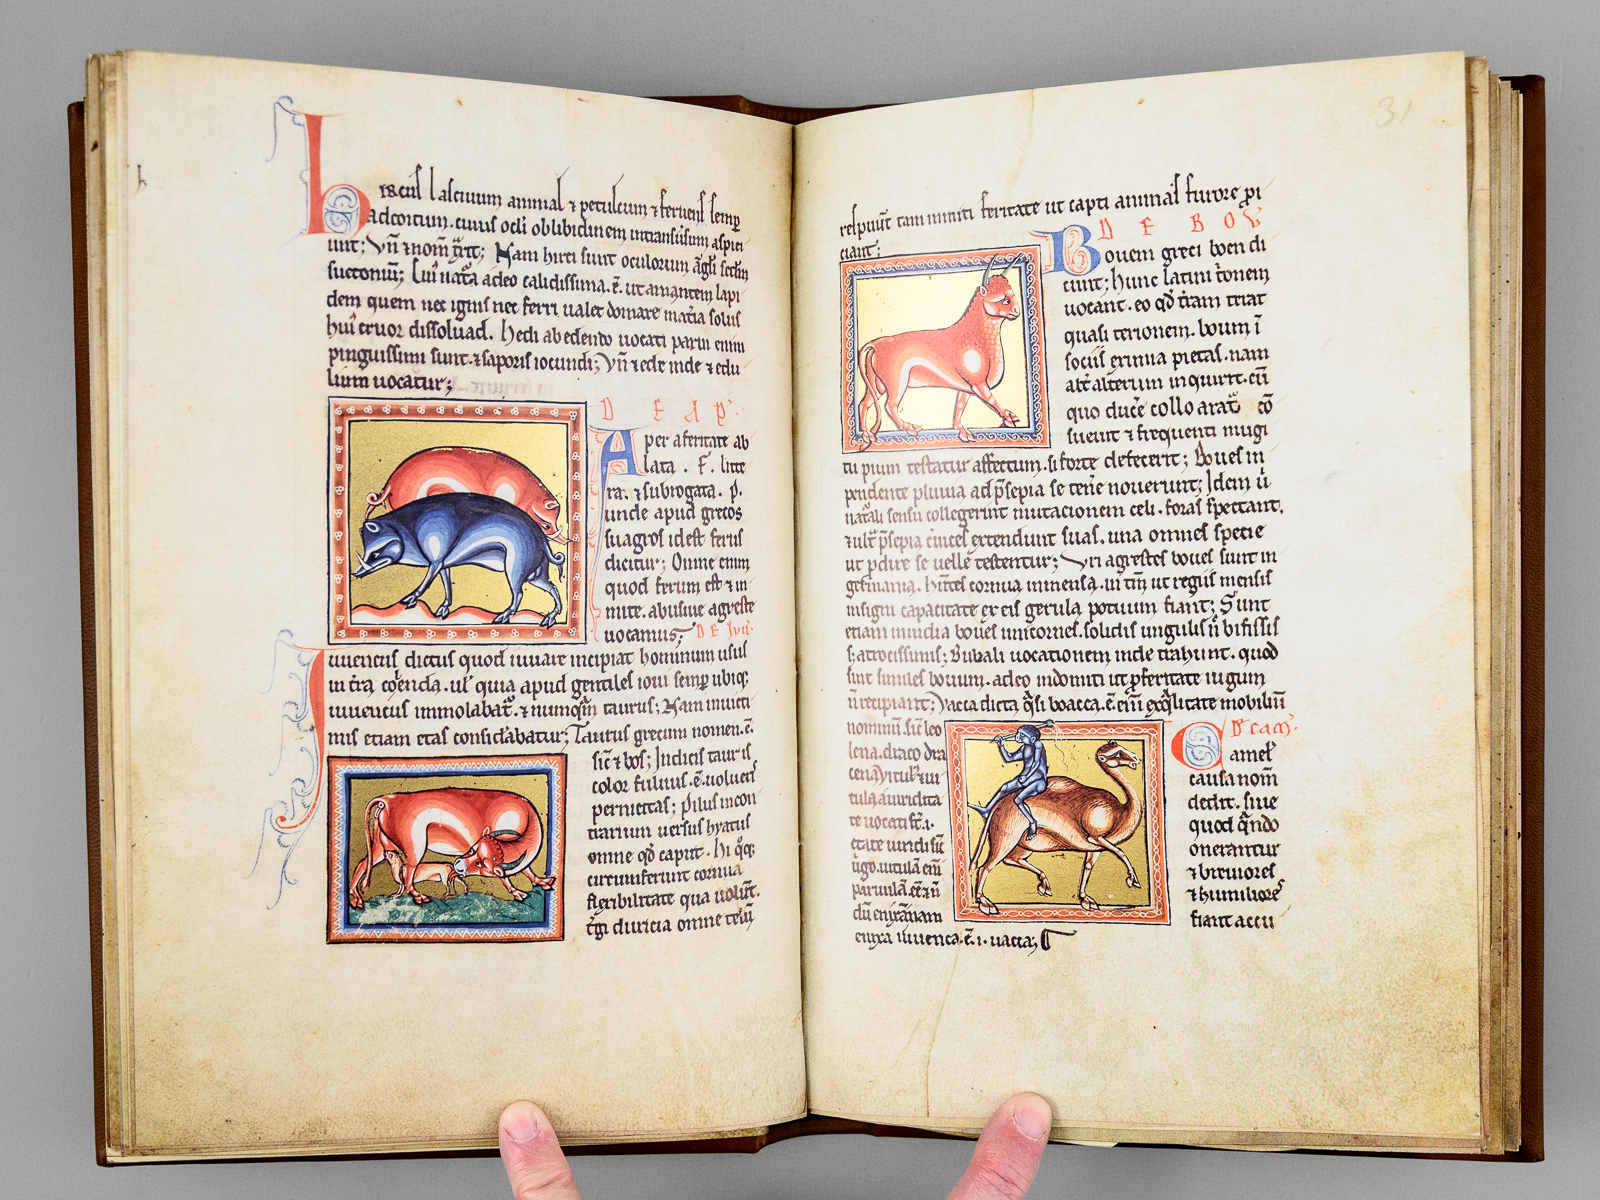 h
hircus lasciuum animal ⁊ petulcum ⁊ feruens semp
ad coitum. cuius oculi ob libidinem in transuersum aspici
unt; Vn̄ ⁊ nom̄ trax̄; Nam hirci sunt oculorum angłi scdm
suetoniū; Cui natꝰa adeo calidissima .ē. ut amantem lapi
dem quem nec ignis nec ferri ualet domare mat̄ia solus
huiꝰ cruor dissoluad. hedi ab edendo uocati parui enim
pinguissimi sunt. ⁊ saporis iocundi; Vn̄ ⁊ ede inde ⁊ edu
lium uocatur;
D E A P̄
Aper a feritate ab
lata . F. litte
ra. ⁊ subrogata . P.
unde apud grecos
suagros id est ferus
dicitur; Omne enim
quod ferum est ⁊ in
mite. abusiue agreste
uocamus; DE Iuu̅
Iuuencus dictus quod iuuare incipiat hominum usus
in t̄ra colenda. ul' quia apud gentiles ioui semꝑ ubiqꝫ
iuuencus immolabat̄. ⁊ numqm̄ taurus; Nam in uicti
mis etiam etas considabatur; Taurus grecum nomen .ē.
sic̄ ⁊ bos; Indicis tauris
color fuluus .ē. uolucris
pernicitas; pilus in con
trarium uersus hyatus
omne qd̄ caput. hi qꝫ
circumferunt cornua
flexibilitate qua uolunt̄.
t̄gi duricia omne telū
31
respuun̄t tam inmiti feritate ut capti animas furore ꝓi
ciant;
D E B O V
Bouem greci boen di
cunt; hunc latini t̄onem
uocant. eo qd̄ t̄ram terat
quasi terionem. boum ī
sociis eximia pietas. nam
alt̄ alterum inquirit. cū
quo duc̄e collo arat̄a cō
sueuit ⁊ frequenti mugi
tu pium testatur affectum. si forte defecerit; Boues in
pendente pluuia ad p̄sepia se ten̄e nouerunt; Idem ū
nat̄ali sensu collegerint mutacionem celi. foras spectant.
⁊ ult̄ p̄sepia c̄uices extendunt suas. una omnes specie
ut ꝓdire se uelle testentur; Vri agrestes boues sunt in
germania. hn̄tes cornua inmensa. in tm̄ ut regiis mensis
insigni capacitate ex eis gerula potuum fiant; Sunt
etiam in india boues unicornes. solidis ungulis n̄ bifissis
s; atrocissimis; Bubali uocationem inde trahunt. quod
sint similes bouum. adeo indomiti ut p̄ feritate iugum
n̄ recipiant; Vacca dicta q̄si boacca. ē enī ex q̄litate mobiliū
nominū. sic̄ leo
lena. draco dra
cena; Vitul' ⁊ ui
tula a uiridita
te uocati st̄ .i.
etate uiridi sic̄
ūgo. uitulā enī
paruulā .ēē. ⁊ n̄
dū enixā nam
enixa iuuenca .ē. .i. uacca;
D' cam̄.
Camel'
causa nom̄
dedit. siue
quod q̄ndo
onerantur
⁊ breuiores
⁊ humiliores
fiant accu